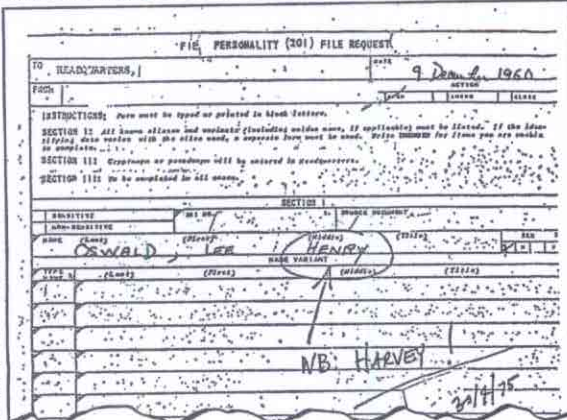 FIELD PERSONALITY (201) FILE REQUEST
TO HEADQUARTERS, DATE 9 December 1960
FROM ACTION
OPEN AMEND CLOSE
INSTRUCTIONS: Form must be typed or printed in block letters.
SECTION I: All known aliases and variants (including maiden name, if applicable) must be listed. If the iden-
tifying data varies with the alias used, a separate form must be used. Write UNKNOWN for items you are unable
to complete.
SECTION II: Cryptonym or pseudonym will be entered in Headquarters.
SECTION III: To be completed in all cases.
SECTION I
SENSITIVE 201 NO. SOURCE DOCUMENT
NON-SENSITIVE
NAME (Last) (First) (Middle) (Title) SEX
OSWALD, LEE HENRY
NAME VARIANT
TYPE (Last) (First) (Middle) (Title)
NB: HARVEY